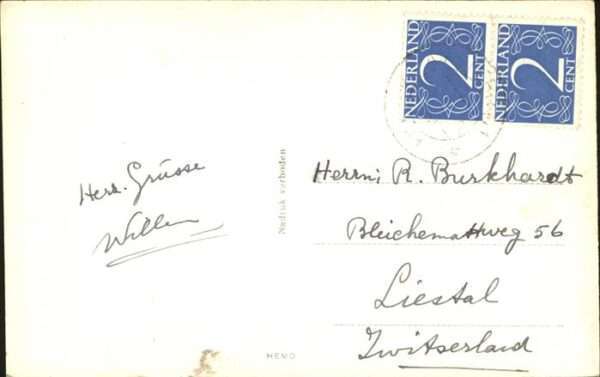 NEDERLAND
2
CENT
NEDERLAND
2
CENT
Herz. Grüsse
Willem
Nadruk verboden
Herrn: R. Burkhardt
Bleichemattweg 56
Liestal
Zwitserland
HEMO